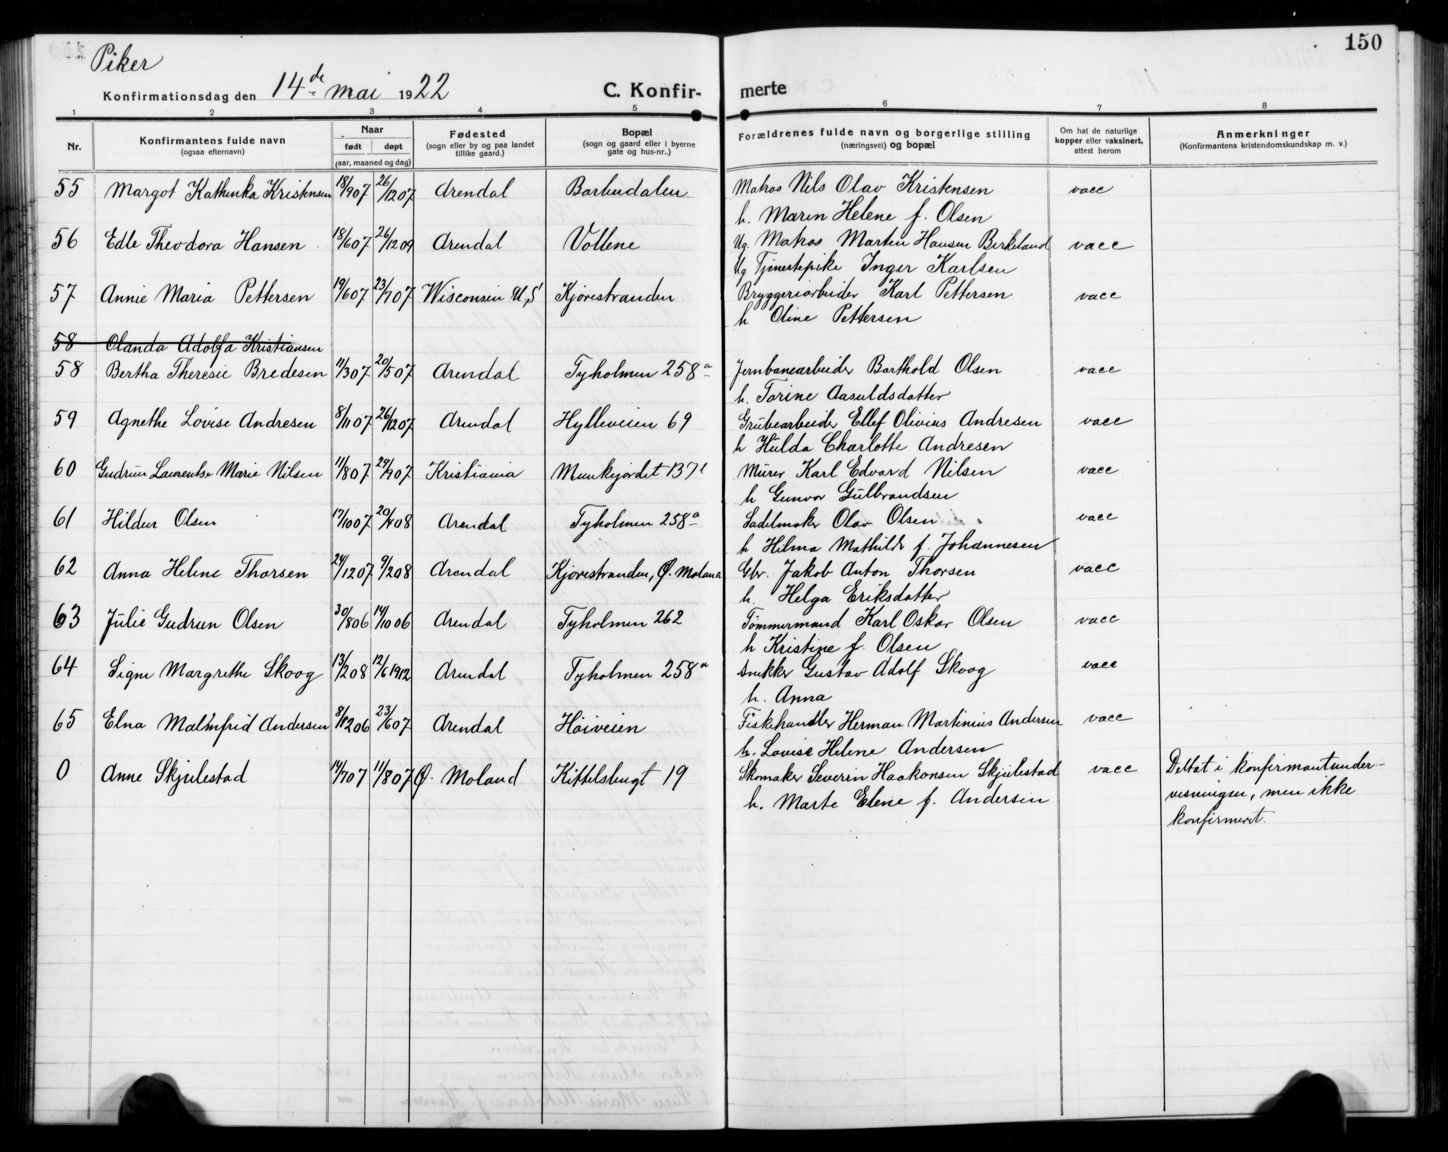 150
Piker
Konfirmationsdag den 14de mai 1922 C. Konfir- merte
1 2 3 4 5 6 7 8
Nr. Konfirmantens fulde navn (ogsaa efternavn) Naar født døpt (aar, maaned og dag) Fødested (sogn eller by og paa landet tillike gaard.) Bopæl (sogn og gaard eller i byerne gate og hus-nr.) Forældrenes fulde navn og borgerlige stilling (næringsvei) og bopæl Om hat de naturlige kopper eller vaksinert, attest herom Anmerkninger (Konfirmantens kristendomskundskap m. v.)
55 Margot Kathinka Kristensen 18/907 26/1207 Arendal Barbudalen Matros Nils Olav Kristensen vacc
h. Maren Helene f. Olsen
56 Edle Theodora Hansen 18/607 26/1209 Arendal Vollene Ug. Matros Martin Hansen Birkeland vacc
Ug Tjenestepike Inger Karlsen
57 Annie Maria Pettersen 19/607 23/707 Wisconsin U,S' Kjørestranden Bryggeriarbeider Karl Pettersen vacc
h Oline Pettersen
58 Olanda Adolfa Kristiansen
58 Bertha Theresie Bredesen 11/307 20/507 Arendal Tyholmen 258a Jernbanearbeider Barthold Olsen vacc
h. Torine Aasuldsdatter
59 Agnethe Lovise Andresen 8/1107 26/1207 Arendal Hylleveien 69 Grubearbeider Ellef Olivius Andresen vacc
h Hulda Charlotte Andresen
60 Gudrun Laurentse Marie Nilsen 11/807 29/907 Kristiania Munkejordet 137 Murer Karl Edvard Nilsen vacc
h Gunvor Gulbrandsen
61 Hildur Olsen 17/1007 20/408 Arendal Tyholmen 258a Sadelmaker Olav Olsen vacc
h Helma Mathilde f. Johannesen
62 Anna Helene Thorsen 24/1207 9/208 Arendal Kjørestranden, Ø. Moland Gbr. Jakob Anton Thorsen vacc
h. Helga Eriksdatter
63 Julie Gudrun Olsen 30/806 14/1006 Arendal Tyholmen 262 Tømmermand Karl Oskar Olsen vacc
h Kristine f. Olsen
64 Signe Margrethe Skoog 13/208 12/61912 Arendal Tyholmen 258a Snekker Gustav Adolf Skoog vacc
h. Anna
65 Elna Malmfrid Andersen 8/1206 23/607 Arendal Høiveien Fiskehandler Herman Martinius Andersen vacc
h. Lovise Helene Andersen
0 Anne Skjulestad 14/707 11/807 Ø. Moland Kittelsbugt 19 Skomaker Severin Haakonsen Skjulestad vacc Deltat i konfirmantunder-
h. Marte Elene f. Andersen visningen, men ikke
konfirmeret.